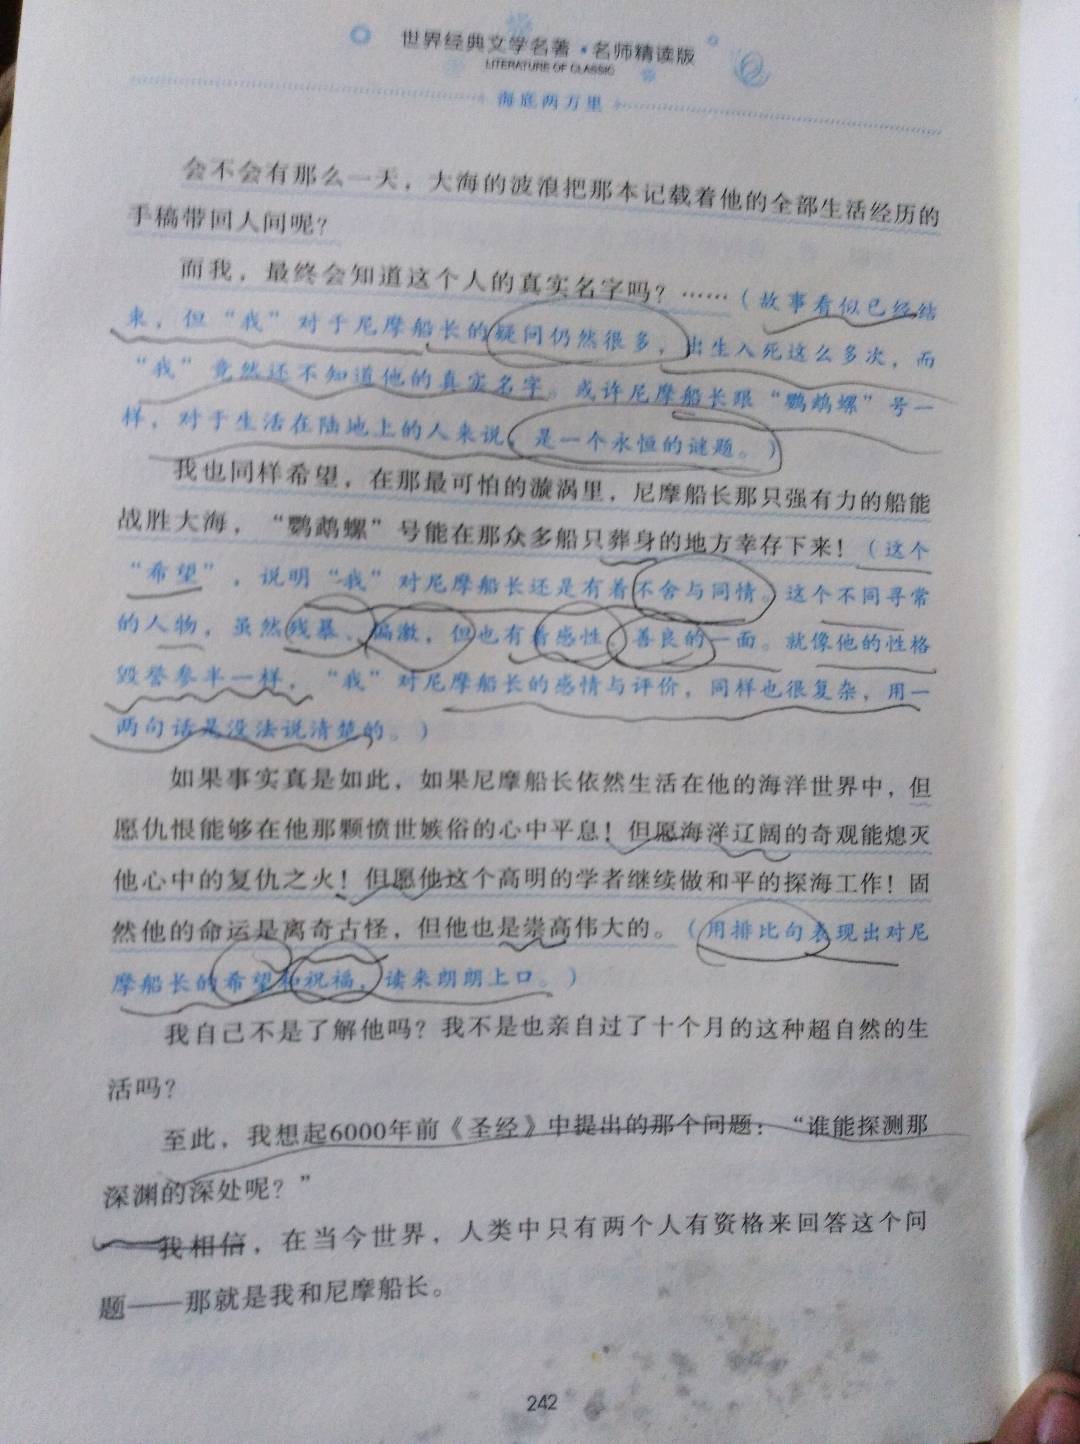 世界经典文学名著·名师精读版
LITERATURE OF CLASSIC
海底两万里
会不会有那么一天，大海的波浪把那本记载着他的全部生活经历的
手稿带回人间呢？
而我，最终会知道这个人的真实名字吗？……（故事看似已经结
束，但“我”对于尼摩船长的疑问仍然很多，出生入死这么多次，而
“我”竟然还不知道他的真实名字。或许尼摩船长跟“鹦鹉螺”号一
样，对于生活在陆地上的人来说，是一个永恒的谜题。）
我也同样希望，在那最可怕的漩涡里，尼摩船长那只强有力的船能
战胜大海，“鹦鹉螺”号能在那众多船只葬身的地方幸存下来！（这个
“希望”，说明“我”对尼摩船长还是有着不舍与同情。这个不同寻常
的人物，虽然残暴、偏激，但也有着感性、善良的一面。就像他的性格
毁誉参半一样，“我”对尼摩船长的感情与评价，同样也很复杂，用一
两句话是没法说清楚的。）
如果事实真是如此，如果尼摩船长依然生活在他的海洋世界中，但
愿仇恨能够在他那颗愤世嫉俗的心中平息！但愿海洋辽阔的奇观能熄灭
他心中的复仇之火！但愿他这个高明的学者继续做和平的探海工作！固
然他的命运是离奇古怪，但他也是崇高伟大的。（用排比句表现出对尼
摩船长的希望和祝福，读来朗朗上口。）
我自己不是了解他吗？我不是也亲自过了十个月的这种超自然的生
活吗？
至此，我想起6000年前《圣经》中提出的那个问题：“谁能探测那
深渊的深处呢？”
我相信，在当今世界，人类中只有两个人有资格来回答这个问
题——那就是我和尼摩船长。
242